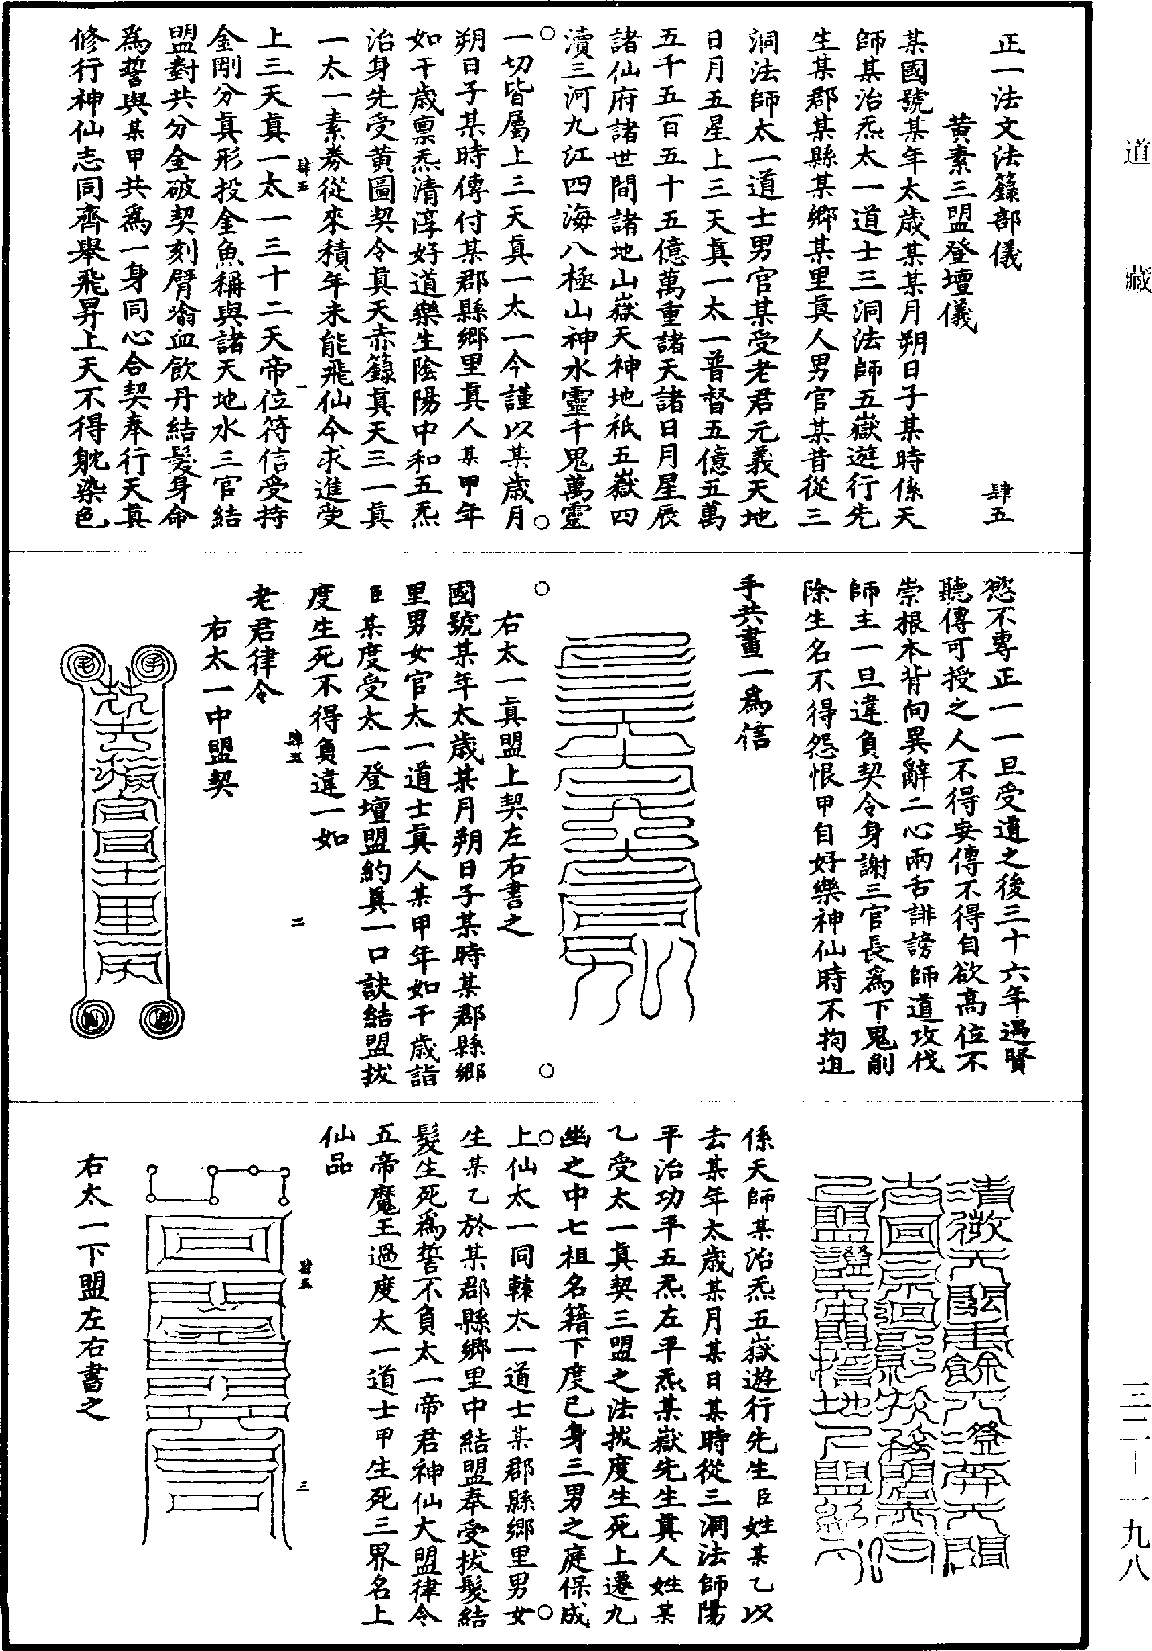 道藏
三二—一九八
正一法文法籙部儀
肆五
黃素三盟登壇儀
某國號某年太歲某某月朔日子某時係天
師某治炁太一道士三洞法師五嶽遊行先
生某郡某縣某鄉某里真人男官某昔從三
洞法師太一道士男官某受老君元義天地
日月五星上三天真一太一普督五億五萬
五千五百五十五億萬重諸天諸日月星辰
諸仙府諸世間諸地山嶽天神地祇五嶽四
瀆三河九江四海八極山神水靈千鬼萬靈
一切皆屬上三天真一太一今謹以某歲月
朔日子某時傳付某郡縣鄉里真人某甲年
如干歲稟炁清淳好道樂生陰陽中和五炁
治身先受黃圖契令真天赤籙真天三一真
一太一素券從來積年未能飛仙今求進受
肆五 一
上三天真一太一三十二天帝位符信受持
金剛分真形投金魚稱與諸天地水三官結
盟對共分金破契刻臂歃血飲丹結髮身命
為誓與某甲共為一身同心合契奉行天真
修行神仙志同齊舉飛昇上天不得躭染色
慾不專正一一旦受道之後三十六年遇賢
聽傳可授之人不得妄傳不得自欲高位不
崇根本背向異辭二心兩舌誹謗師道攻伐
師主一旦違負契令身謝三官長為下鬼削
除生名不得怨恨甲自好樂神仙時不拘迫
手共畫一為信
右太一真盟上契左右書之
國號某年太歲某月朔日子某時某郡縣鄉
里男女官太一道士真人某甲年如干歲詣
臣某度受太一登壇盟約真一口訣結盟拔
度生死不得負違一如
肆五 二
老君律令
右太一中盟契
係天師某治炁五嶽遊行先生臣姓某乙以
去某年太歲某月某日某時從三洞法師陽
平治功平五炁左平炁某嶽先生真人姓某
乙受太一真契三盟之法拔度生死上遷九
幽之中七祖名籍下度已身三男之庭保成
上仙太一同轅太一道士某郡縣鄉里男女
生某乙於某郡縣鄉里中結盟奉受拔髮結
髮生死為誓不負太一帝君神仙大盟律令
五帝魔王過度太一道士甲生死三界名上
仙品
肆五 三
右太一下盟左右書之